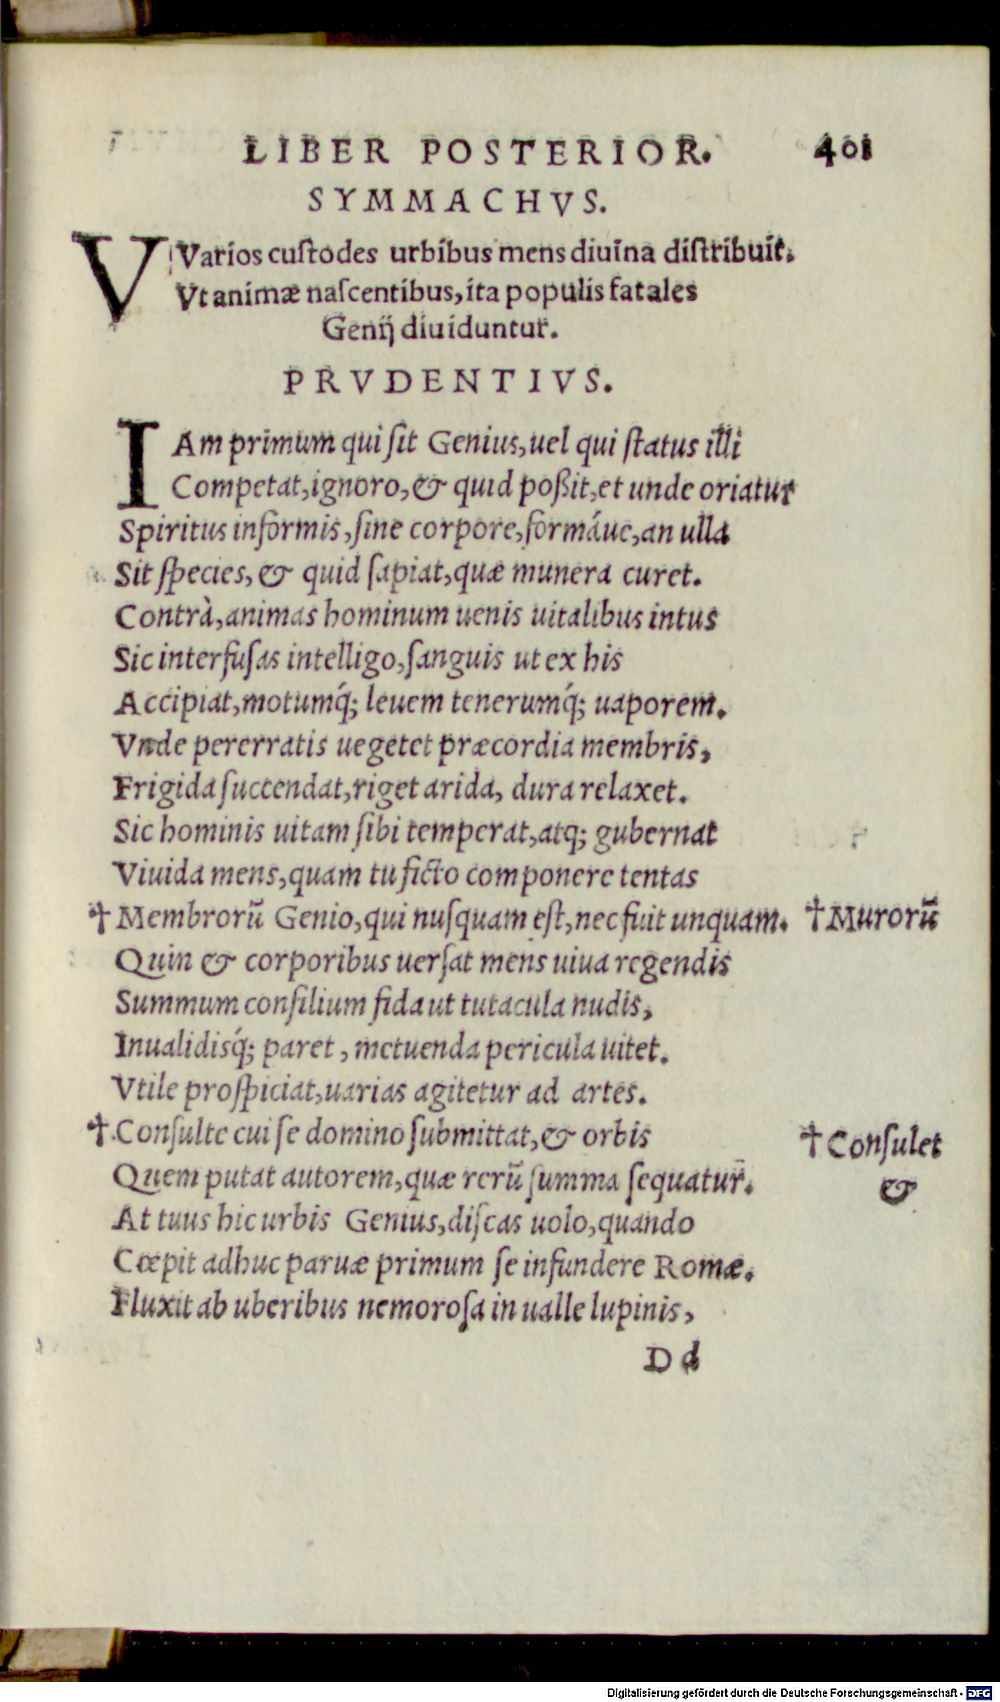 LIBER POSTERIOR. 401
SYMMACHVS.
VVarios cuſtodes urbibus mens diuina diſtribuit.
Vt animæ naſcentibus, ita populis fatales
Genij diuiduntur.
PRVDENTIVS.
IAm primum qui ſit Genius, uel qui ſtatus illi
Competat, ignoro, & quid poßit, et unde oriatur
Spiritus informis, ſine corpore, formáue, an ulla
Sit ſpecies, & quid ſapiat, quæ munera curet.
Contrà, animas hominum uenis uitalibus intus
Sic interfuſas intelligo, ſanguis ut ex his
Accipiat, motumq́; leuem tenerumq́; uaporem.
Vnde pererratis uegetet præcordia membris,
Frigida ſuccendat, riget arida, dura relaxet.
Sic hominis uitam ſibi temperat, atq; gubernat
Viuida mens, quam tu ficto componere tentas
† Membrorũ Genio, qui nuſquam eſt, nec fuit unquam. † Murorũ
Quin & corporibus uerſat mens uiua regendis
Summum conſilium fida ut tutacula nudis,
Inualidisq́; paret, metuenda pericula uitet.
Vtile proſpiciat, uarias agitetur ad artes.
† Conſulte cui ſe domino ſubmittat, & orbis † Conſulet
Quem putat autorem, quæ rerũ ſumma ſequatur. &
At tuus hic urbis Genius, diſcas uolo, quando
Cœpit adhuc paruæ primum ſe infundere Romæ.
Fluxit ab uberibus nemoroſa in ualle lupinis,
Dd
Digitalisierung gefördert durch die Deutsche Forschungsgemeinschaft - DFG